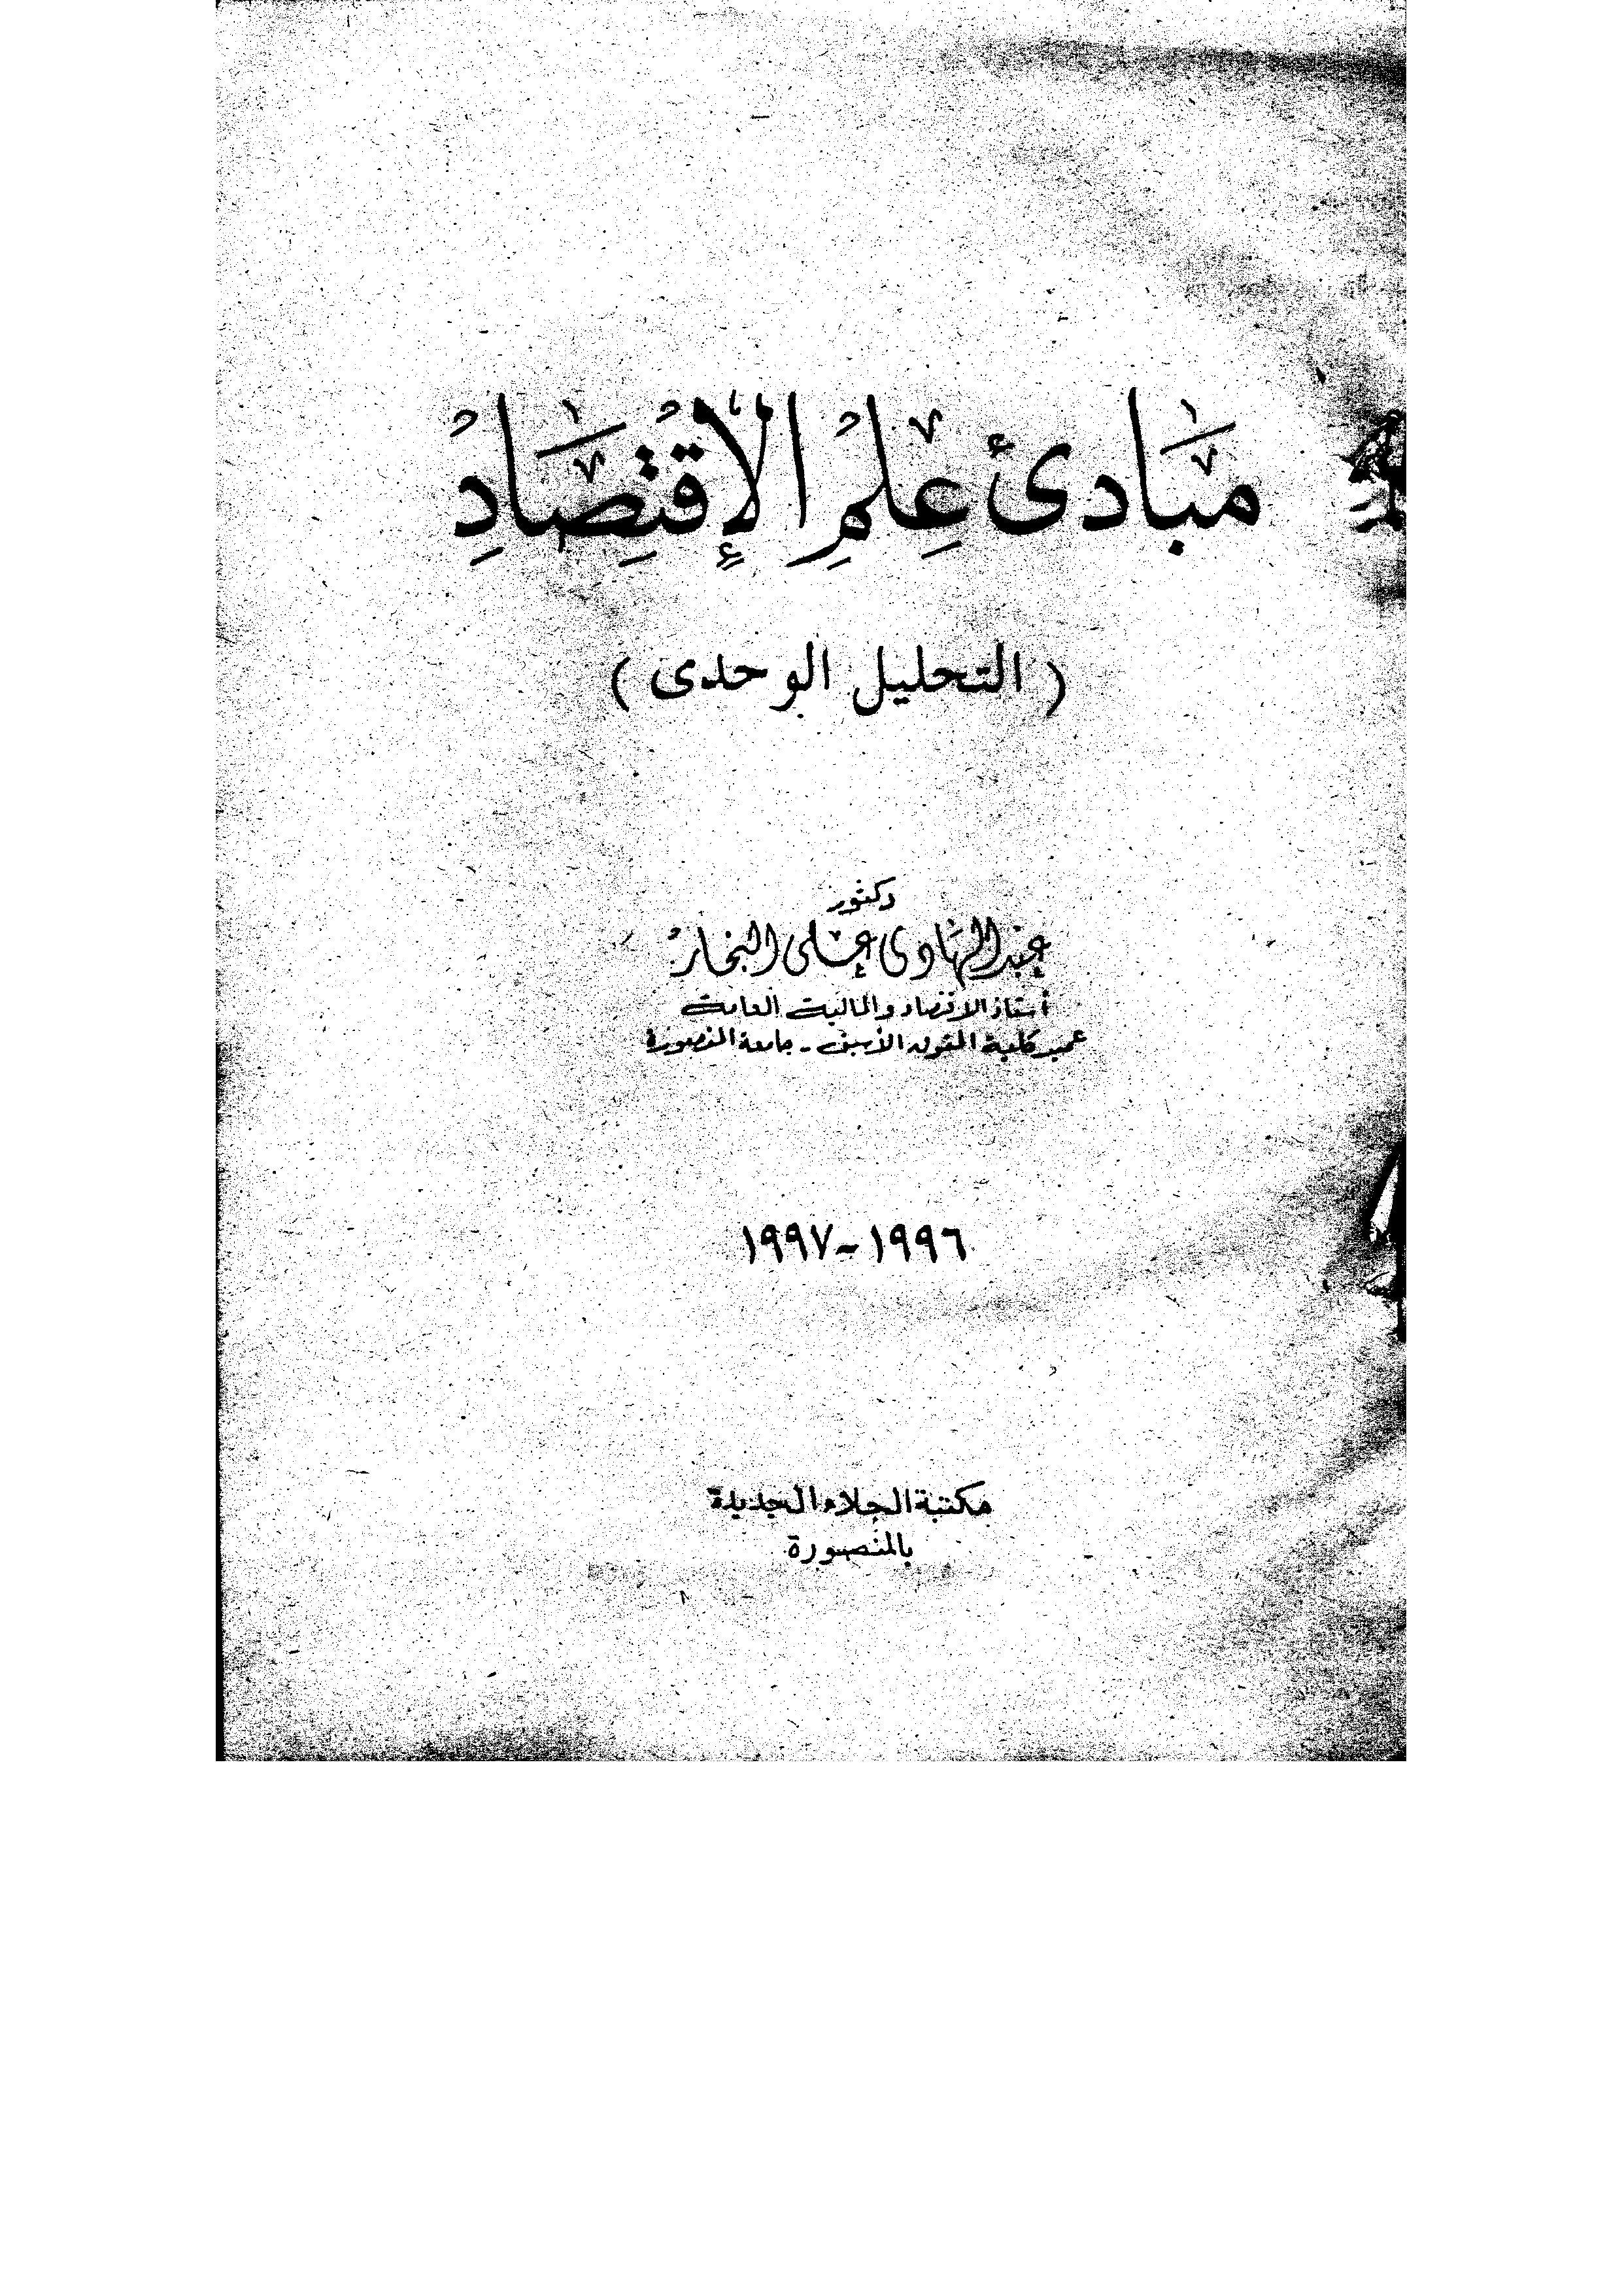 مبادئ علم الإقتصاد
( التحليل الوحدى )
دكتور
عبد الهادى على النجار
أستاذ الاقتصاد والمالية العامة
عميد كلية الحقوق الأسبق - جامعة المنصورة
١٩٩٦ - ١٩٩٧
مكتبة الجلاء الجديدة
بالمنصورة